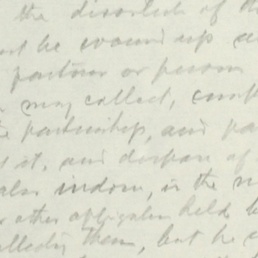 the dissolution of the
must be wound up
partner or person
may collect, comp
the partnership, and pa
it, and dispose of
also indorse, in the n
other obligation held b
collecting them, but he c